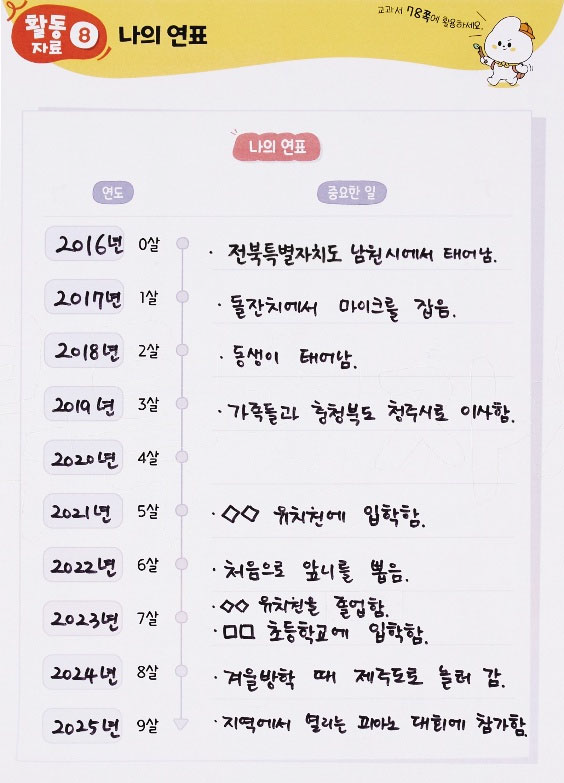 활동
자료 8
나의 연표
교과서 78쪽에 활용하세요.
나의 연표
연도 중요한 일
2016년 0살 · 전북특별자치도 남원시에서 태어남.
2017년 1살 · 돌잔치에서 마이크를 잡음.
2018년 2살 · 동생이 태어남.
2019년 3살 · 가족들과 충청북도 청주시로 이사함.
2020년 4살
2021년 5살 · ◇◇ 유치원에 입학함.
2022년 6살 · 처음으로 앞니를 뽑음.
2023년 7살 · ◇◇ 유치원을 졸업함.
· □□ 초등학교에 입학함.
2024년 8살 · 겨울방학 때 제주도로 놀러 감.
2025년 9살 · 지역에서 열리는 피아노 대회에 참가함.